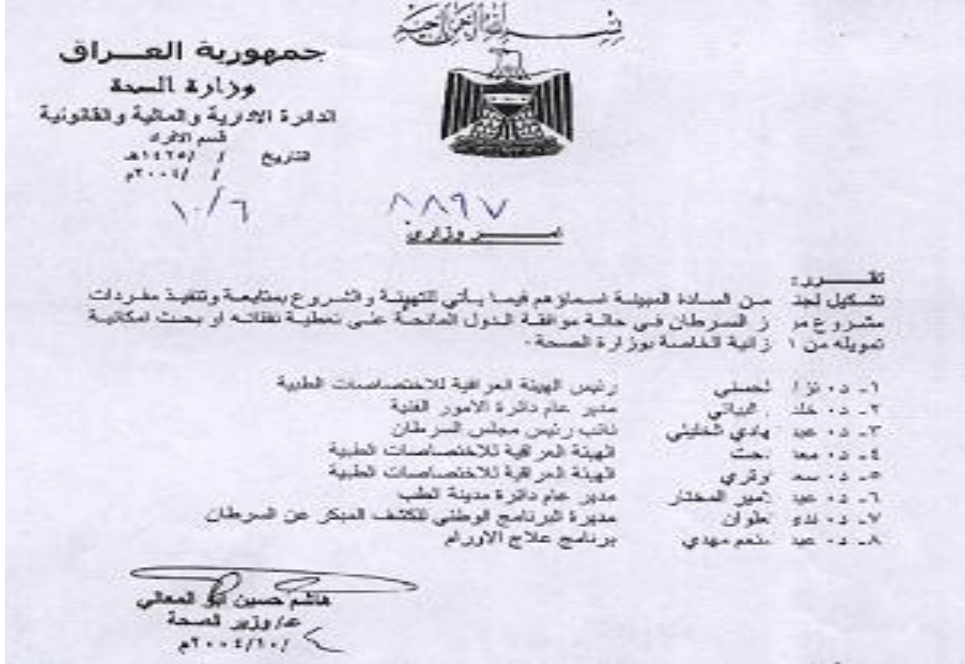 بسم الله الرحمن الرحيم
جمهورية العـــراق
وزارة الصحة
الدائرة الادارية والمالية والقانونية
قسم الافراد
التاريخ / /١٤٢٥هـ
/ /٢٠٠٤م
١٠/٦
٨٨٩٧
وزاري
تقـــرر:
تشكيل لجنـ مـن السـادة المبينـة اسـماؤهم فيمـا يـأتي للتهيئـة والشـروع بمتابعـة وتنفيـذ مفـردات
مشـروع مر ز السـرطان فـي حالـة موافقـة الـدول المانحـة علـى تغطيـة نفقاتـه او بحـث امكانيـة
تمويله من ا زانية الخاصة بوزارة الصحة.
١ـ د. نزا لحسني رئيس الهيئة العراقية للاختصاصات الطبية
٢ـ د. خلد البياتي مدير عام دائرة الامور الفنية
٣ـ د. عبد هادي الخليلي نائب رئيس مجلس السرطان
٤ـ د. معا الهيئة العراقية للاختصاصات الطبية
٥ـ د. سعد وتري الهيئة العراقية للاختصاصات الطبية
٦ـ د. عبد لامير المختار مدير عام دائرة مدينة الطب
٧ـ د. ندى علوان مديرة البرنامج الوطني للكشف المبكر عن السرطان
٨ـ د. عبد منعم مهدي برنامج علاج الاورام
هاشم حسين ابو المعالي
ع/وزير الصحة
/٢٠٠٤/١٠م